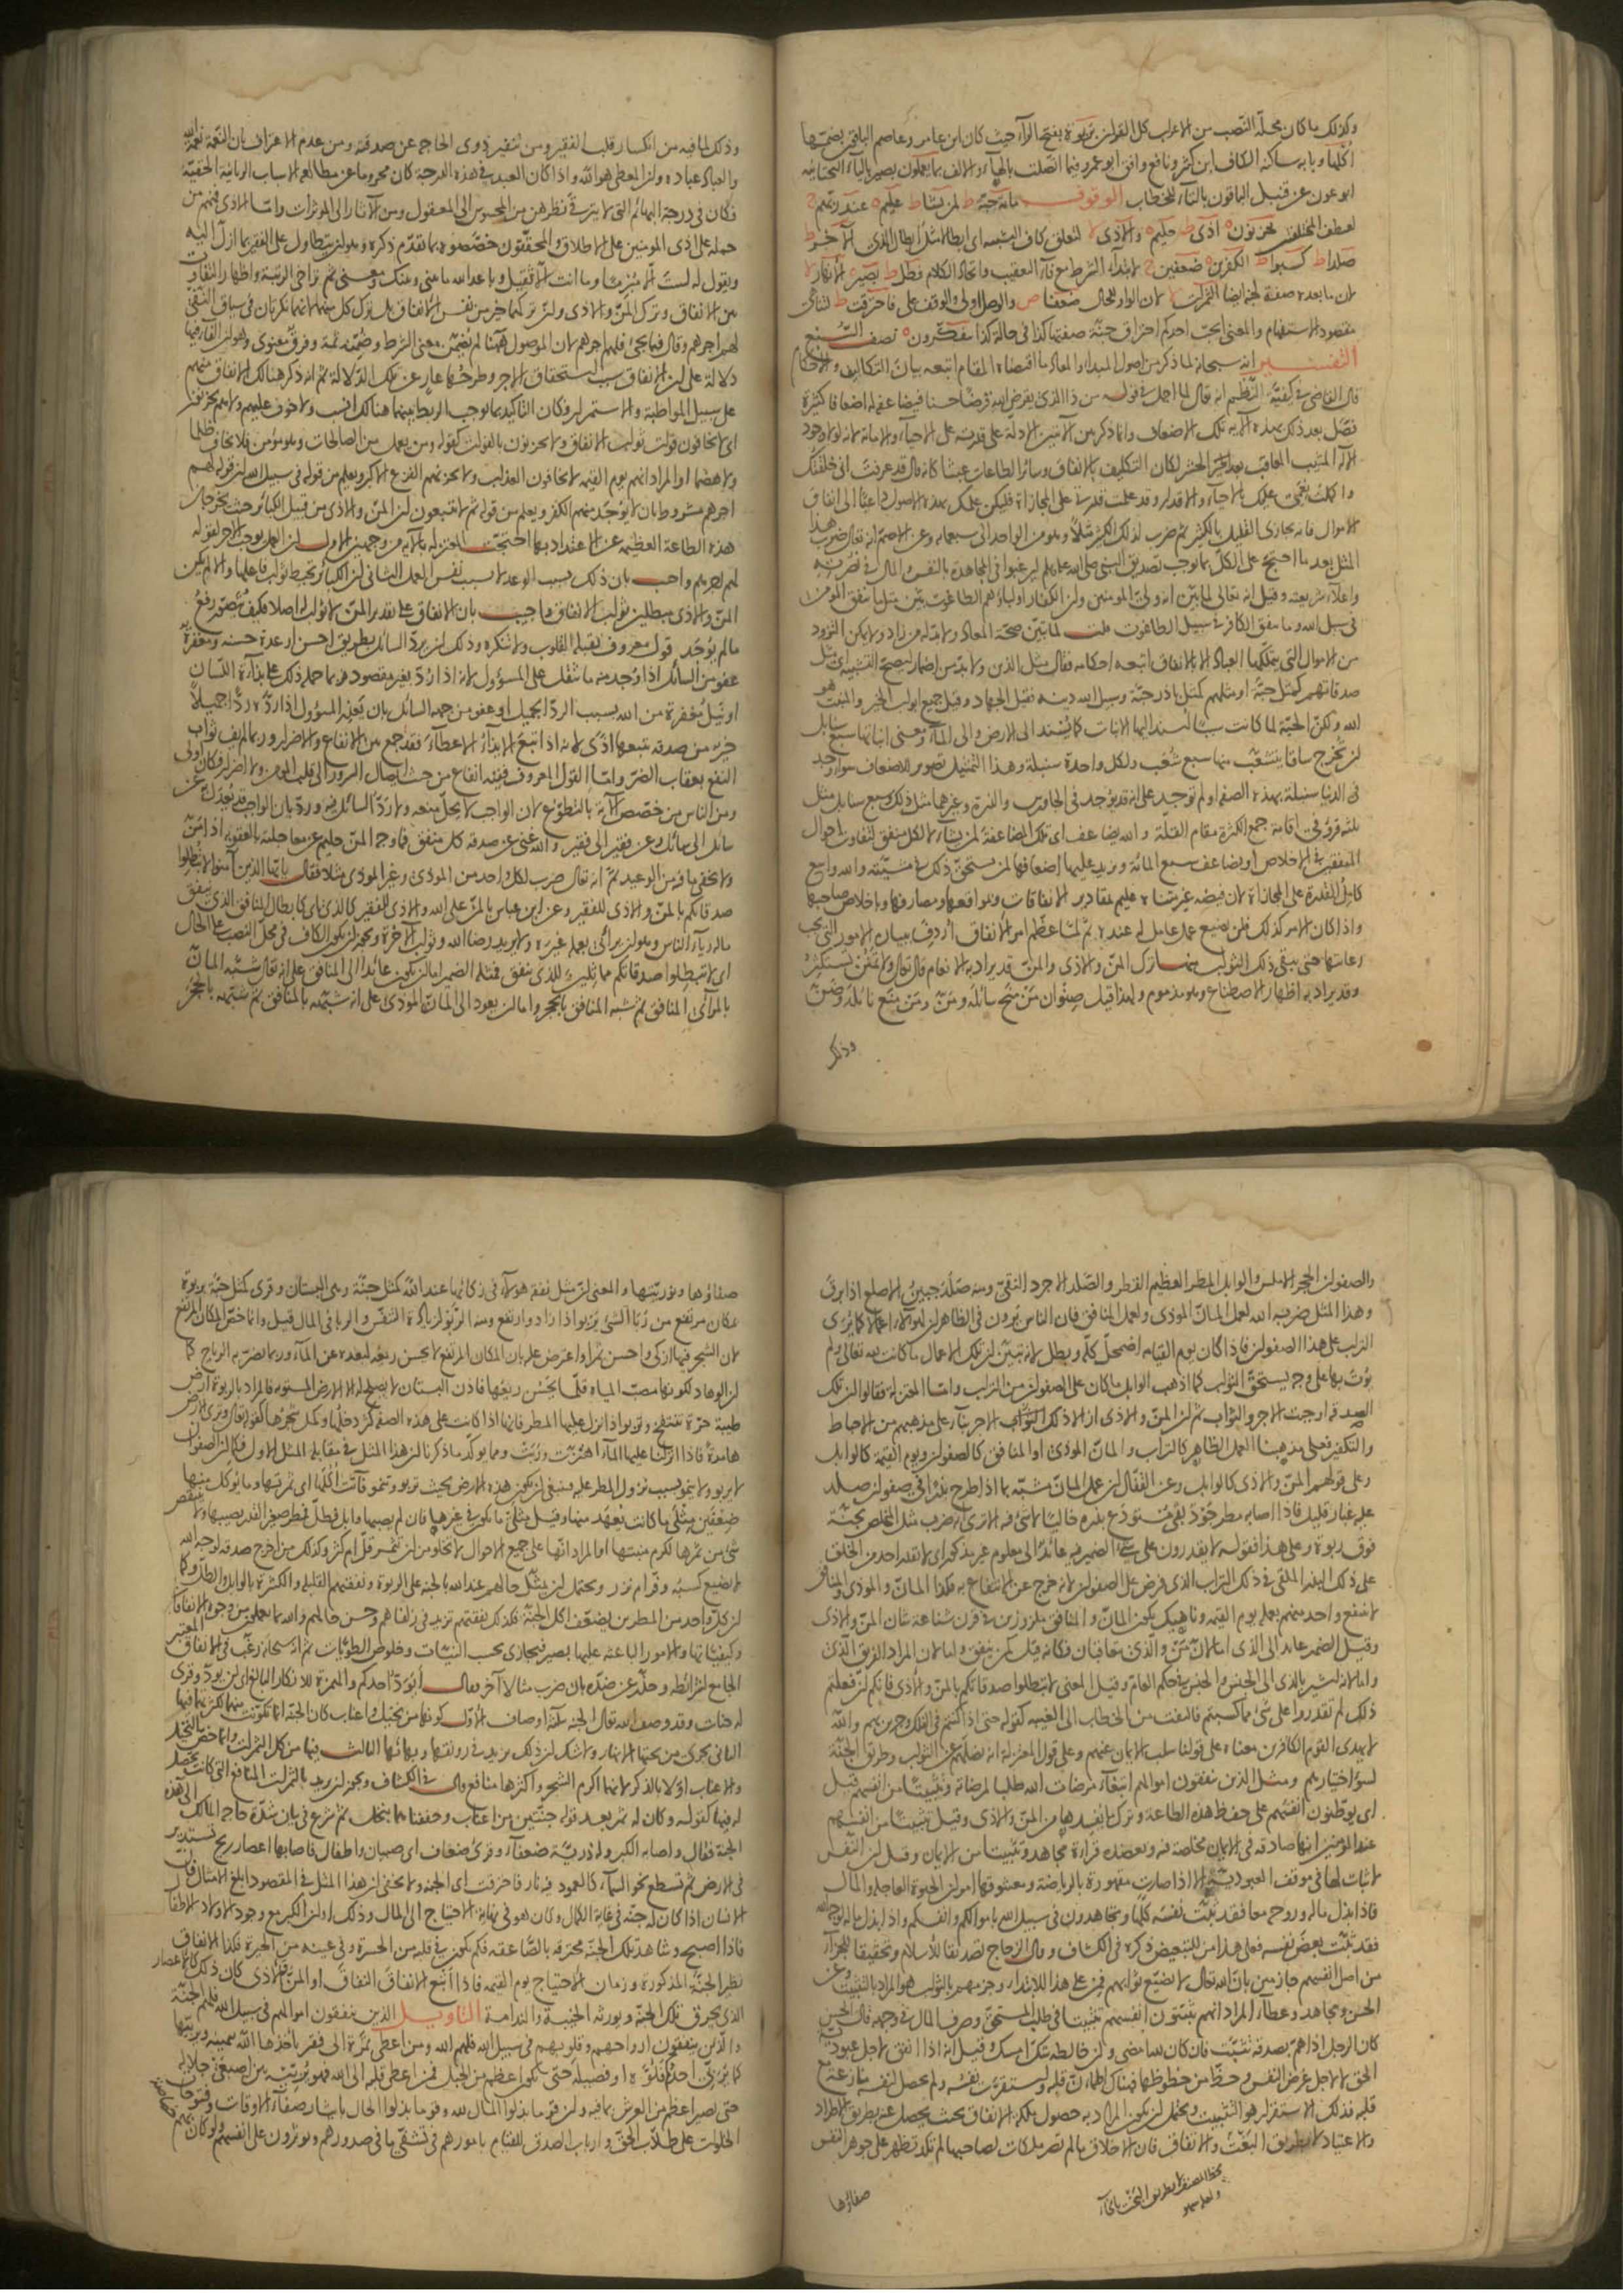 وكذلك ما كان محله النصب من الاعراب كل القران بربوة بفتح الرآء حيث كان ابن عامر وعاصم الباقون بضمها
اكلها وبابه ساكنة الكاف ابن كثير ونافع وافق ابو عمرو فيما اتصلت بالهاء والالف بما يعملون بصير بالياء التحتانية
ابو عون عن قنبل الباقون بالتاء للخطاب الوقوف مائة حبة ط لمن يشا ط عليم ه عند ربهم ج
لعطف المختلفين يحزنون ه اذى ط حليم ه والاذى لا لتعلق كاف التشبيه اى ابطالا مثل ابطال الذى الآخر ط
صلدا ط كسبوا ط الكفرين ه ضعفين ج لابتدآء الشرط مع فآء التعقيب واتحاد الكلام فطل ط بصير ه الانهار لا
لان ما بعده صفة لجنة ايضا الثمرات لا لان الواو للحال ضعفا ص والوصل اولى والوقف على فاحترقت ط لتناهى
مقصود الاستفهام والمعنى ايحب احدكم احتراق جنة صفتها كذا فى حالة كذا يتفكرون ه نصف السبع
التفسير انه سبحانه لما ذكر من اصول المبدا والمعاد ما اقتضاه المقام اتبعه بيان التكاليف والاحكام
قال القاضى فى كيفية النظم انه لما اجمل فى قوله من ذا الذى يقرض الله قرضا حسنا فيضاعفه له اضعافا كثيرة
فصل بعد ذلك بهذه الآية تلك الاضعاف وانما ذكر بين الآيتين الادلة على قدرته على الاحياء والاماتة لانه لولا وجود
الاله المثيب المعاقب بعد الحشر لكان التكليف بالانفاق وسائر الطاعات عبثا كانه قال قد عرفت انى خلقتك
واكملت نعمتى عليك بالاحياء والاقدار وقد علمت قدرتى على المجازاة فليكن علمك بهذه الاصول داعيا الى انفاق
الاموال فانه يجازى القليل بالكثير ثم ضرب لذلك الكثير مثلا وهو من الواحد الى سبعمائة وعن الاصم انه تعالى ضرب هذا
المثل بعد ما احتج على الكل بما يوجب تصديق النبى صلى الله عليه وسلم ليرغبوا فى المجاهدة بالنفس والمال فى نصرته
واعلاء شريعته وقيل انه تعالى لما بين انه ولى المومنين وان الكفار اولياؤهم الطاغوت بين مثل ما ينفق المومن
فى سبيل الله وما ينفق الكافر فى سبيل الطاغوت قلت لما تبين صحة المعاد ولا بد له من زاد ولا يمكن التزود
من الاموال التى يتملكها العباد الا بالانفاق اتبعه احكامه فقال مثل الذين ولا بد من اضمار ليصح التشبيه اى مثل
صدقاتهم كمثل حبة او مثلهم كمثل باذر حبة وسبيل الله دينه فقيل الجهاد وقيل جميع ابواب الخير والمنبت هو
الله ولكن الحبة لما كانت سببا اسند اليها الانبات كما يسند الى الارض والى المآء ومعنى انباتها سبع سنابل
ان تخرج ساقا يتشعب منها سبع شعب ولكل واحدة سنبلة وهذا التمثيل تصوير للاضعاف سوآء وجد
فى الدنيا سنبلة بهذه الصفة او لم توجد على انه قد يوجد فى الجاورس والذرة وغيرهما مثل ذلك وسبع سنابل مثل
ثلثة قروء فى اقامة جمع الكثرة مقام القلة والله يضاعف اى تلك المضاعفة لمن يشاء لا لكل منفق لتفاوت احوال
المنفقين فى الاخلاص او يضاعف سبع المائة ويزيد عليها اضعافها لمن يستحق ذلك فى مشيئته والله واسع
كامل القدرة على المجازاة لان فيضه غير متناه عليم بمقادير الانفاقات ومواقعها ومصارفها وباخلاص صاحبها
واذا كان الامر كذلك فلن يضيع عمل عامل له عنده ثم لما عظم امر الانفاق اردف ببيان الامور التى يجب
رعايتها حتى يبقى ذلك الثواب منها ترك المن والاذى والمن قد يراد به الانعام قال تعالى ولا تمنن تستكثر
وقد يراد به اظهار الاصطناع وهو مذموم ولهذا قيل صنوان من منح سائله ومن ومن منع نائله وضن
وذلك
وذلك لما فيه من انكسار قلب الفقير ومن تنفير ذوى الحاجة عن صدقته ومن عدم الاعتراف بان النعمة نعمة الله
والعباد عباده وان المعطى هو الله واذا كان العبد فى هذه الدرجة كان محروما عن مطالعة الاسباب الربانية الحقيقية
فكان فى درجة البهائم التى لا يترقى نظرهن من المحسوس الى المعقول ومن الآثار الى الموثرات واما الاذى فمنهم من
حمله على اذى المومنين على الاطلاق والمحققون خصصوه بما تقدم ذكره وهو ان يتطاول على الفقير بما ازل اليه
ويقول له لست الا مبرما وما انت الا ثقيل وباعد الله ما بينى وبينك ومعنى ثم تراخى الرتبة واظهار التفاوت
بين الانفاق وترك المن والاذى وان تركهما خير من نفس الانفاق بل ترك كل منهما لانهما نكرتان فى سياق النفى
لهم اجرهم وقال فيما يجئ فلهم اجرهم لان الموصول ههنا لم يضمن معنى الشرط وضمنه ثمة وفرق معنوى وهو ان الفاء فيها
دلالة على ان الانفاق سبب استحقاق الاجر وطرحها عار عن تلك الدلالة ثم انه ذكر هنالك الانفاق منهم
على سبيل المواظبة والاستمرار فكان التاكيد بما يوجب الربط بينهما هنالك انسب ولا خوف عليهم ولا هم يحزنون
اى لا يخافون فوات ثواب الانفاق ولا يحزنون بالفوات كقوله ومن يعمل من الصالحات وهو مومن فلا يخاف ظلما
ولا هضما او المراد انهم يوم القيمة لا يخافون العذاب ولا يحزنهم الفزع الاكبر ويعلم من قوله فى سبيل الله ان قوله لهم
اجرهم مشروط بان لا يوجد منهم الكفر ويعلم من قوله ثم لا يتبعون ان المن والاذى من قبيل الكبائر حيث يخرجان
هذه الطاعة العظيمة عن الاعتداد بها احتجت المعتزلة بالآية من وجهين الاول ان العمل يوجب الاجر لقوله
لهم اجرهم واجيب بان ذلك بسبب الوعد لا بسبب نفس العمل الثانى ان الكبائر تحبط ثواب فاعلها والا لم يكن
المن والاذى مبطلين ثواب الانفاق واجيب بان الانفاق على تقدير المن لا ثواب له اصلا فكيف يتصور رفع
ما لم يوجد قول معروف يقبله القلوب ولا تنكره وذلك ان يرد السائل بطريق احسن او عدة حسنة ومغفرة
عفو من السائل اذا وجد منه ما يثقل على المسؤول لانه اذا رد بغير مقصوده ربما حمله ذلك على بذآءة اللسان
او نيل مغفرة من الله بسبب الرد الجميل او عفو من جهة السائل بان يعذر المسؤول اذا رده ردا جميلا
خير من صدقة يتبعها اذى لانه اذا اتبع الايذاء الاعطآء فقد جمع بين الانفاع والاضرار وربما لم يف ثواب
النفع بعقاب الضر واما القول المعروف ففيه انفاع من حيث ايصال السرور الى قلب المومن ولا اضرار فكان اولى
ومن الناس من خصص الآية بالتطوع لان الواجب لا يحل منعه ولا رد السائل فيه ورد بان الواجب قد يعدل به عن
سائل الى سائل وعن فقير الى فقير والله غنى عن صدقة كل منفق فما وجه المن حليم عن معاجلته بالعقوبة اذا من
ولا يخفى ما فيه من الوعيد ثم انه تعالى ضرب لكل واحد من الموذى وغير الموذى مثلا فقال يا ايها الذين آمنوا لا تبطلوا
صدقاتكم بالمن والاذى للفقير وعن ابن عباس بالمن على الله والاذى للفقير كالذى اى كابطال المنافق الذى ينفق
ماله ريآء الناس وهو ان يرائى بعمله غيره ولا يريد رضا الله وثواب الآخرة ويجوز ان يكون الكاف فى محل النصب على الحال
اى لا تبطلوا صدقاتكم مماثلين للذى ينفق فمثله الضمير اما ان يكون عائدا الى المنافق على انه تعالى شبه المان
بالمرائى المنافق ثم شبه المنافق بالحجر واما ان يعود الى المان الموذى على انه شبهه بالمنافق ثم شبهه بالحجر
والصفوان الحجر الاملس والوابل المطر العظيم القطر والصلد الاجرد النقى ومنه صلد جبين الاصلع اذا برق
وهذا المثل ضربه الله لعمل المان الموذى ولعمل المنافق فان الناس يرون فى الظاهر ان لهؤلاء اعمالا كما يرى
التراب على هذا الصفوان فاذا كان يوم القيامة اضمحل كله وبطل لانه تبين ان تلك الاعمال ما كانت لله تعالى ولم
يؤت بها على وجه يستحق الثواب كما اذهب الوابل ما كان على الصفوان من التراب واما المعتزلة فقالوا ان تلك
الصدقة اوجبت الاجر والثواب ثم ان المن والاذى ازالا ذلك الثواب الاجر بناء على مذهبهم من الاحباط
والتكفير فعلى مذهبنا العمل الظاهر كالتراب والمان الموذى او المنافق كالصفوان ويوم القيمة كالوابل
وعلى قولهم المن والاذى كالوابل وعن القفال ان عمل المان مشبه بما اذا طرح بذرا فى صفوان صلد
عليه غبار قليل فاذا اصابه مطر جود بقى مستودع بذره خاليا لا شئ فيه الا ترى انه ضرب مثل المخلص بجنة
فوق ربوة وعلى هذا فقوله لا يقدرون على شئ الضمير فيه عائد الى معلوم غير مذكور اى لا يقدر احد من الخلق
على ذلك البذر الملقى فى ذلك التراب الذى فرض على الصفوان لانه خرج عن الانتفاع به فكذا المان والموذى والمنافق
لا ينتفع واحد منهم بعمله يوم القيمة وناهيك بكون المان والمنافق ملزوزين فى قرن شناعة شان المن والاذى
وقيل الضمير عائد الى الذى اما لان من والذى متعاقبان فكانه قيل كمن ينفق واما لان المراد الفريق الذى
واما لانه اشير بالذى الى الجنس والجنس فى حكم العام وقيل المعنى لا تبطلوا صدقاتكم بالمن والاذى فانكم ان فعلتم
ذلك لم تقدروا على شئ مما كسبتم فالتفت من الخطاب الى الغيبة كقوله حتى اذا كنتم فى الفلك وجرين بهم والله
لا يهدى القوم الكافرين معناه على قولنا سلب الايمان عنهم وعلى قول المعتزلة انه يضلهم عن الثواب وطريق الجنة
لسوء اختيارهم ومثل الذين ينفقون اموالهم ابتغآء مرضات الله طلبا لمرضاته وتثبيتا من انفسهم قيل
اى يوطنون انفسهم على حفظ هذه الطاعة وترك ما يفسدها من المن والاذى وقيل تثبيتا من انفسهم
عند المومنين انها صادقة فى الايمان مخلصة فيه ويعضده قراءة مجاهد وتبيينا من الايمان وقيل ان النفس
لا ثبات لها فى موقف العبودية الا اذا صارت مقهورة بالرياضة ومعشوقها امران الحيوة العاجلة والمال
فاذا بذل ماله وروحه معا فقد ثبت نفسه كلها وتجاهدون فى سبيل الله باموالكم وانفسكم واذا بذل ماله لوجه الله
فقد ثبت بعض نفسه فعلى هذا من للتبعيض ذكره فى الكشاف وقال الزجاج تصديقا للاسلام وتحقيقا للجزآء
من اصل انفسهم جازمين بان الله تعالى لا يضيع ثوابهم فمن على هذا للابتداء وجزمهم بالثواب هو المراد بالتثبيت وعن
الحسن ومجاهد وعطاء المراد انهم يثبتون انفسهم تثبيتا فى طلب المستحق وصرف المال فى وجهه قال الحسن
كان الرجل اذا هم بصدقة تثبت فان كان لله امضى وان خالطه شك امسك وقيل انه اذا انفق لاجل عبودية
الحق لا لاجل غرض النفس وحظ من حظوظها فهناك اطمأن قلبه واستقرت نفسه ولم يحصل لنفسه منازعة مع
قلبه فذلك الاستقرار هو التثبيت ويحتمل ان يكون المراد به حصول ملكة الانفاق بحيث يحصل عنه بطريق الاطراد
والاعتياد لا بطريق البخت والاتفاق فان الاخلاق ما لم تصر ملكات لصاحبها لم تكد تظهر على جوهر النفس
بخط المصنف لا بطريق البخت بالخاء
ولعله سهو
صفاؤها
صفاؤها ونوريتها والمعنى ان مثل نفقة هؤلاء فى زكائها عند الله كمثل جنة وهى البستان وقرى كمثل حبة بربوة
بمكان مرتفع من ربا الشئ يربو اذا زاد وارتفع ومنه الربو لزيادة التنفس والربا فى المال قيل وانما خص المكان المرتفع
لان الشجر فيها ازكى واحسن ثمرا واعترض عليه بان المكان المرتفع لا يحسن ريعه لبعده عن المآء وربما تضر به الرياح كما
ان الوهاد لكونها مصب المياه قلما يحسن ريعها فاذن البستان لا يصلح له الا الارض المستوية فالمراد بالربوة ارض
طيبة حرة تنتفخ وتربو اذا نزل عليها المطر فانها اذا كانت على هذه الصفة كثر دخلها وكمل شجرها كقوله تعالى وترى الارض
هامدة فاذا انزلنا عليها المآء اهتزت وربت ومما يوكد ما ذكرنا ان هذا المثل فى مقابلة المثل الاول فكما ان الصفوان
لا يربو ولا ينمو بسبب نزول المطر عليه فينبغى ان يكون هذه الارض بحيث تربو وتنمو فآتت اكلها اى ثمرتها وما يؤكل منها
ضعفين مثلى ما كانت يعهد منها وقيل مثلى ما يكون فى غيرها فان لم يصبها وابل فطل فمطر صغير القطر يصيبها ولا ينتقص
شئ من ثمرها لكرم منبتها او المراد انها على جميع الاحوال لا تخلو من ان تثمر قل ام كثر وكذلك من اخرج صدقة لوجه الله
لا يضيع كسبه وفر ام نزر ويحتمل ان يمثل حالهم عند الله بالجنة على الربوة ونفقتهم القليلة والكثيرة بالوابل والطل وكما
ان كل واحد من المطرين يضعف اكل الجنة فكذلك نفقتهم تزيد فى زلفاهم وحسن حالهم والله بما يعملون من وجوه الانفاق
وكيفياتها والامور الباعثة عليها بصير فيجازى بحسب النيات وخلوص الطويات ثم انه سبحانه رغب فى الانفاق المعتبر
الجامع لشرائطه وحذر عن ضده بان ضرب مثالا آخر فقال ايود احدكم والهمزة للانكار البالغ اى لن يود وقرى
له جنات وقد وصف الله تعالى الجنة بثلثة اوصاف الاول كونها من نخيل واعناب كان الجنة انما تكونت منهما لكثرتهما فيها
الثانى تجرى من تحتها الانهار ولا شك ان ذلك يزيد فى رونقها وبهائها الثالث فيها من كل الثمرات وانما خص النخيل
والاعناب اولا بالذكر لانهما اكرم الشجر واكثرها منافع وقال فى الكشاف ويجوز ان يريد بالثمرات المنافع التى كانت تحصل
له فيها كقوله وكان له ثمر بعد قوله جنتين من اعناب وحففناهما بنخل ثم شرع فى بيان شدة حاجة المالك الى هذه
الجنة فقال واصابه الكبر وله ذرية ضعفاء وقرى ضعاف اى صبيان واطفال فاصابها اعصار ريح تستدير
فى الارض ثم تسطع نحو السمآء كالعمود فيه نار فاحترقت اى الجنة ولا يخفى ان هذا المثل فى المقصود ابلغ الامثال فان
الانسان اذا كان له جنة فى غاية الكمال وكان هو فى نهاية الاحتياج الى المال وذلك اوان الكبر مع وجود الاولاد الاطفال
فاذا اصبح وشاهد تلك الجنة محترقة بالصاعقة فكم يكون فى قلبه من الحسرة وفى عينه من الحيرة فكذا الانفاق
نظير الجنة المذكورة وزمان الاحتياج يوم القيمة فاذا اتبع الانفاق النفاق او المن والاذى كان ذلك كالاعصار
الذى يحرق تلك الجنة ويورثه الخيبة والندامة التاويل الذين ينفقون اموالهم فى سبيل الله فلهم الجنة
والذين ينفقون ارواحهم وقلوبهم فى سبيل الله فلهم الله ومن اعطى تمرة الى فقير ياخذها الله بيمينه ويربيها
كما يربى احدكم فلوه او فصيله حتى يكون اعظم من الجبل فمن اعطى قلبه الى الله فهو يربيه بين اصبعى جلاله
حتى يصير اعظم من العرش بما فيه وان قوما بذلوا المال لله وقوما بذلوا الحال بايثار صفآء الاوقات وفتوحات
الخلوات على طلاب الحق وارباب الصدق للقيام بامورهم فى تشفى ما فى صدورهم ويؤثرون على انفسهم ولو كان بهم
خصاصة